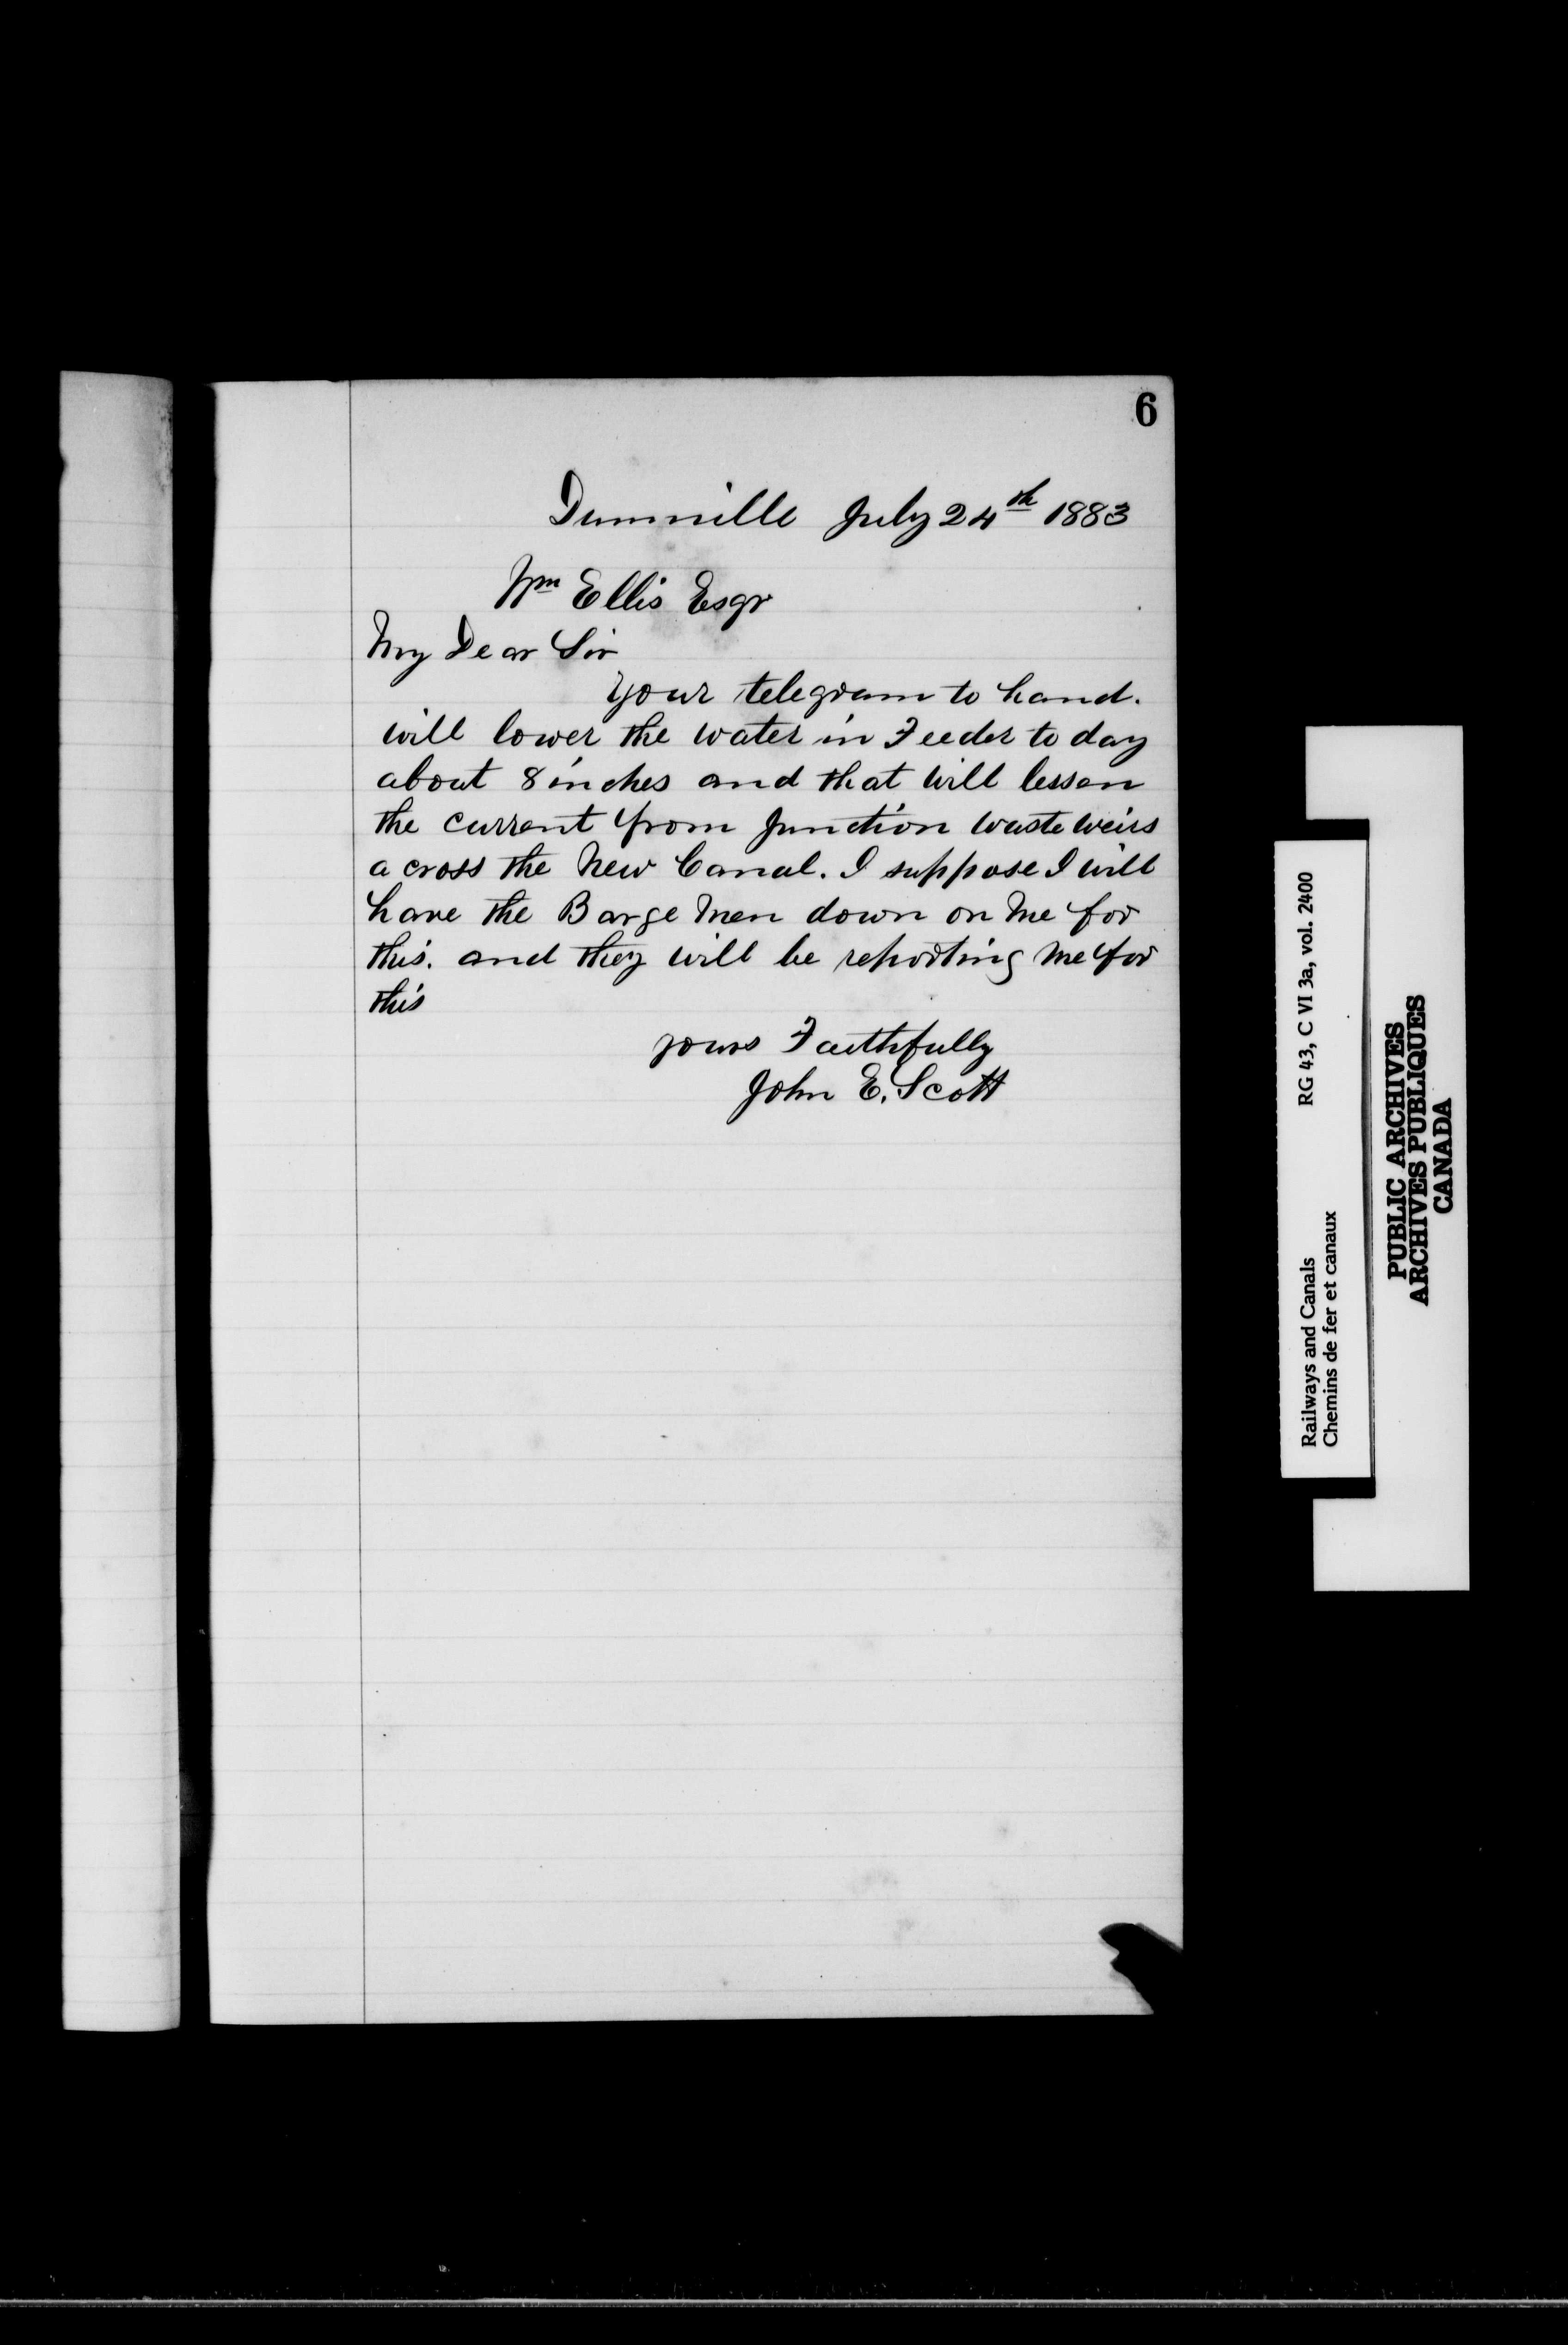 6
Dunnville July 24th 1883
Wm Ellis Esqr
My Dear Sir
Your telegram to hand.
will lower the water in Feeder to day
about 8 inches and that will lessen
the current from Junction waste weirs
across the New Canal. I suppose I will
have the Barge Men down on Me for
this. and they will be reporting Me for
this
yours Faithfully
John E. Scott
Railways and Canals RG 43, C VI 3a, vol. 2400
Chemins de fer et canaux
PUBLIC ARCHIVES
ARCHIVES PUBLIQUES
CANADA